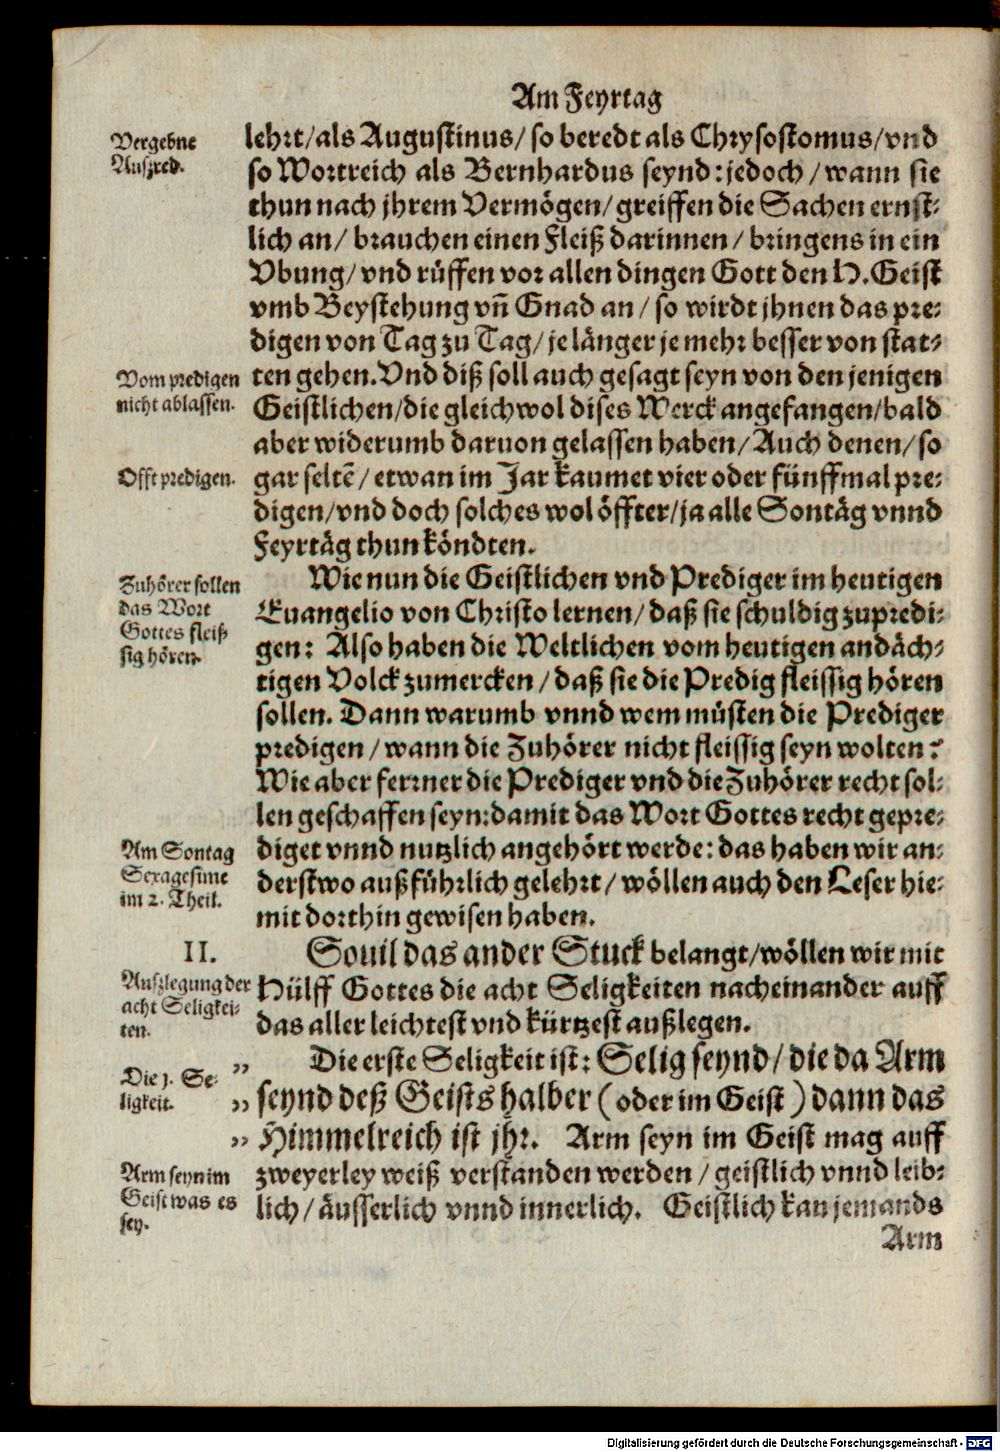 Am Feyrtag
Vergebne
Außred.
lehrt/als Augustinus/ so beredt als Chrysostomus/vnd
so Wortreich als Bernhardus seynd:jedoch/wann sie
thun nach jhrem Vermögen/greiffen die Sachen ernst-
lich an/ brauchen einen Fleiß darinnen/ bringens in ein
Vbung/ vnd rüffen vor allen dingen Gott den H. Geist
vmb Beystehung vñ Gnad an/ so wirdt jhnen das pre-
digen von Tag zu Tag/ je länger je mehr besser von stat-
Vom predigen
nicht ablassen.
ten gehen. Vnd diß soll auch gesagt seyn von den jenigen
Geistlichen/die gleichwol dises Werck angefangen/bald
aber widerumb daruon gelassen haben/ Auch denen/ so
Offt predigen.
gar seltẽ/ etwan im Jar kaumet vier oder fünffmal pre-
digen/vnd doch solches wol öffter/ja alle Sontäg vnnd
Feyrtäg thun köndten.
Zuhörer sollen
das Wort
Gottes fleiß
sig hören.
Wie nun die Geistlichen vnd Prediger im heutigen
Euangelio von Christo lernen/ daß sie schuldig zupredi-
gen: Also haben die Weltlichen vom heutigen andäch-
tigen Volck zumercken/ daß sie die Predig fleissig hören
sollen. Dann warumb vnnd wem müsten die Prediger
predigen/wann die Zuhörer nicht fleissig seyn wolten?
Wie aber ferrner die Prediger vnd die Zuhörer recht sol-
len geschaffen seyn:damit das Wort Gottes recht gepre-
Am Sontag
Sexagesime
im 2. Theil.
diget vnnd nutzlich angehört werde: das haben wir an-
derstwo außführlich gelehrt/ wöllen auch den Leser hie-
mit dorthin gewisen haben.
II.
Außlegung der
acht Seligkei-
ten.
Souil das ander Stuck belangt/wöllen wir mit
Hülff Gottes die acht Seligkeiten nacheinander auff
das aller leichtest vnd kürtzest außlegen.
Die 1. Se-
ligkeit.
„ Die erste Seligkeit ist: Selig seynd/ die da Arm
„ seynd deß Geists halber (oder im Geist) dann das
„ Himmelreich ist jhr. Arm seyn im Geist mag auff
Arm seyn im
Geist was es
sey.
zweyerley weiß verstanden werden/ geistlich vnnd leib-
lich/ äusserlich vnnd innerlich. Geistlich kan jemands
Arm
Digitalisierung gefördert durch die Deutsche Forschungsgemeinschaft - DFG